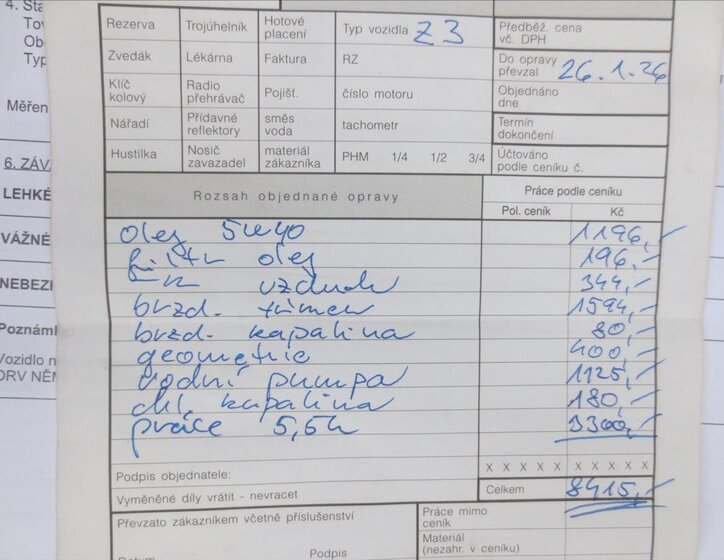 4. Sta
To
Ob
Typ
Měřen
6. ZÁV
LEHKÉ
VÁŽNÉ
NEBEZ
Poznám
Vozidlo n
DRV NĚM
Rezerva Trojúhelník Hotové placení Typ vozidla Z3 Předběž. cena vč. DPH
Zvedák Lékárna Faktura RZ Do opravy převzal 26.1.26
Klíč kolový Radio přehrávač Pojišť. číslo motoru Objednáno dne
Nářadí Přídavné reflektory směs voda tachometr Termín dokončení
Hustilka Nosič zavazadel materiál zákazníka PHM 1/4 1/2 3/4 Účtováno podle ceníku č.
Rozsah objednané opravy Práce podle ceníku
Pol. ceník Kč
olej 5w40 1196,-
filtr olej 196,-
vzduch 344,-
brzd. třmen 1594,-
brzd. kapalina 80,-
geometrie 400,-
vodní pumpa 1125,-
chl. kapalina 180,-
práce 5,5h 3300,-
Podpis objednatele: X X X X X X X X X
Vyměněné díly vrátit - nevracet Celkem 8415,-
Převzato zákazníkem včetně příslušenství Práce mimo ceník
Materiál (nezahr. v ceníku)
Datum Podpis